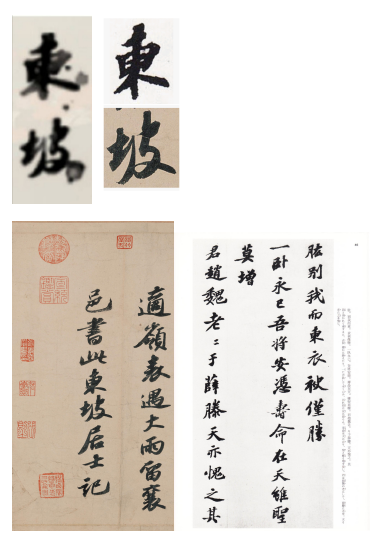 東坡
東
坡
適嶺表遇大雨留襄
邑書此東坡居士記
肱別我而東衣袂僅勝
一卧永已吾將安憑壽命在天雖聖
莫增
君趙魏老〻于薛滕天亦愧之其